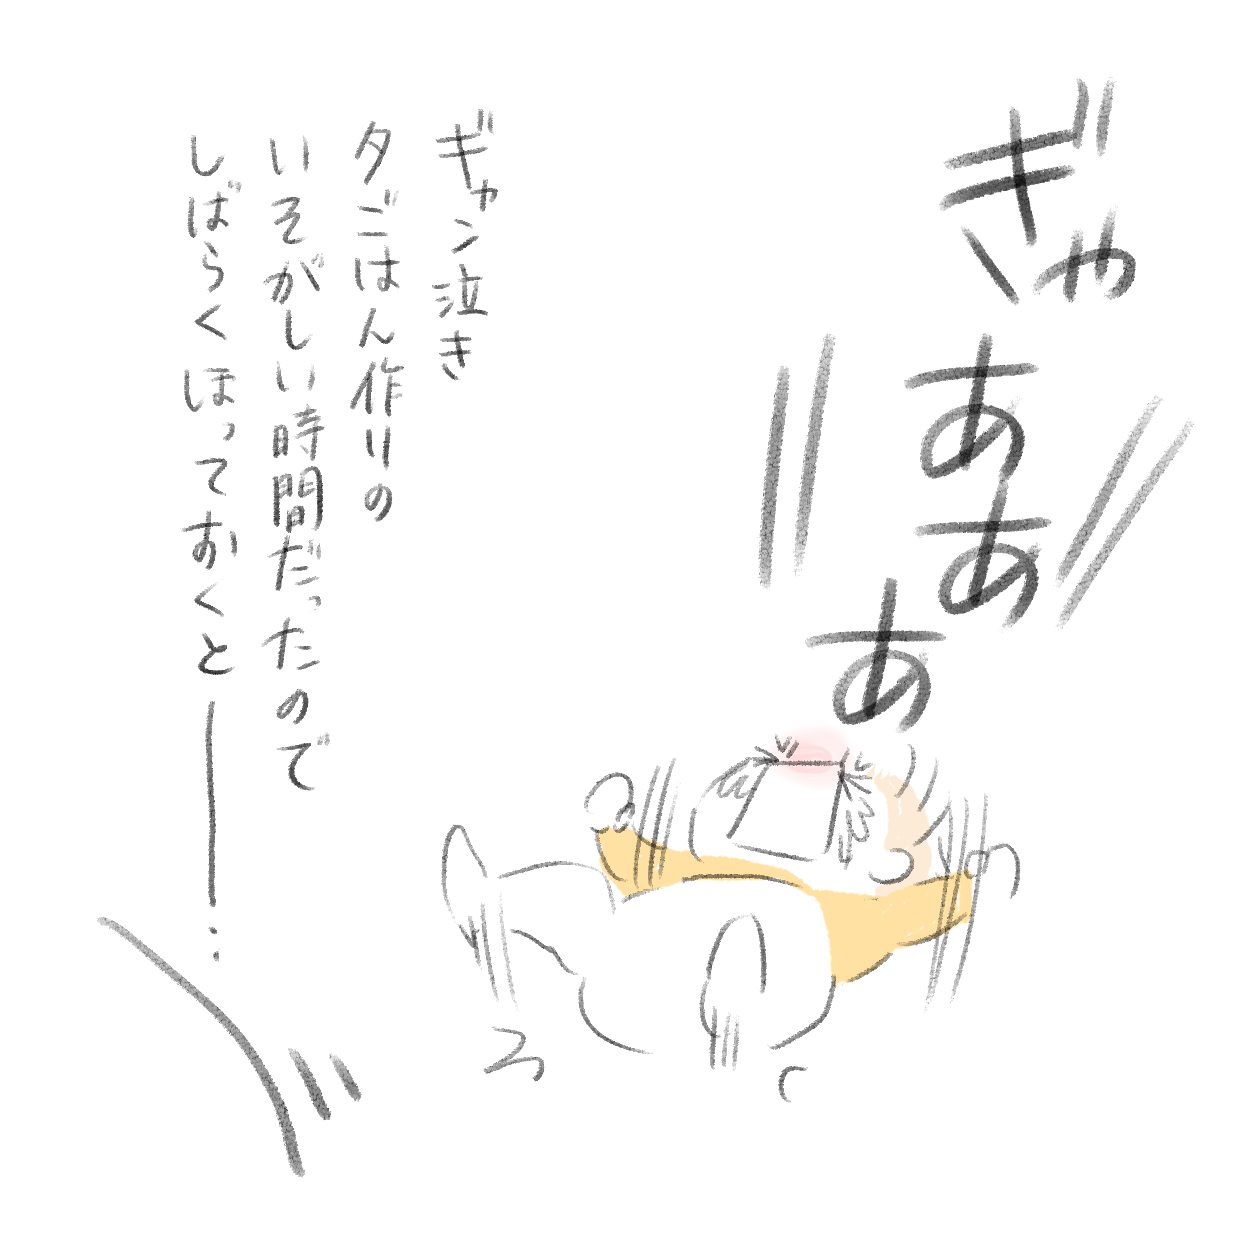 ぎゃあああ
ギャン泣き
夕ごはん作りの
いそがしい時間だったので
しばらくほっておくと―――…